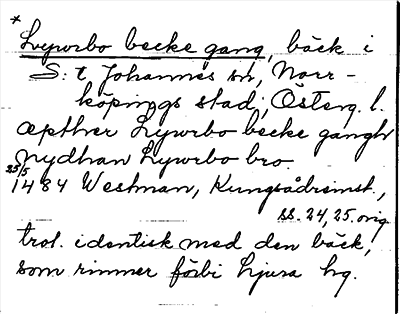 * Lywrbo becke gang, bäck i
S:t Johannes sn, Norr-
köpings stad, Österg. l.
æpther Lywrbo becke gangh
nydhan Lywrbo bro.
25/5 1484 Westman, Kungsådreinst.,
ss. 24, 25. orig.
trol. identisk med den bäck,
som rinner förbi Ljura hg.